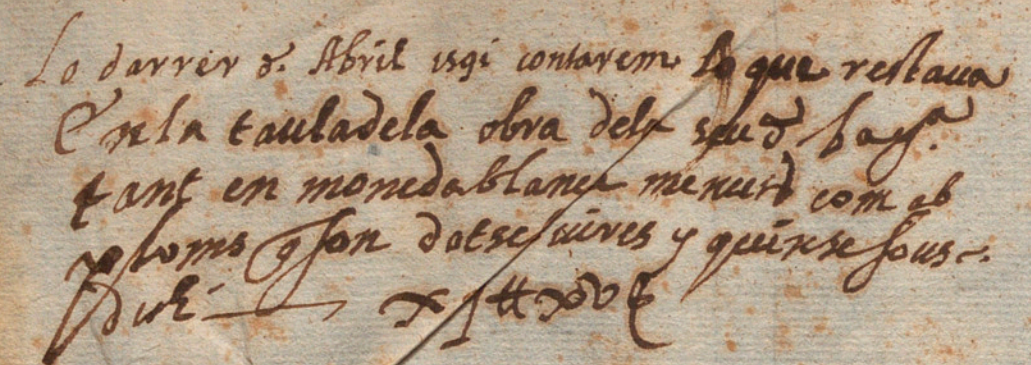 Lo darrer de Abril 1591 contarem lo que restava
En la taula de la obra dela seu de
tant en moneda blanca menuts com ab
ploms q son dotse liures y quinse sous
dich xij ℔ xv ß